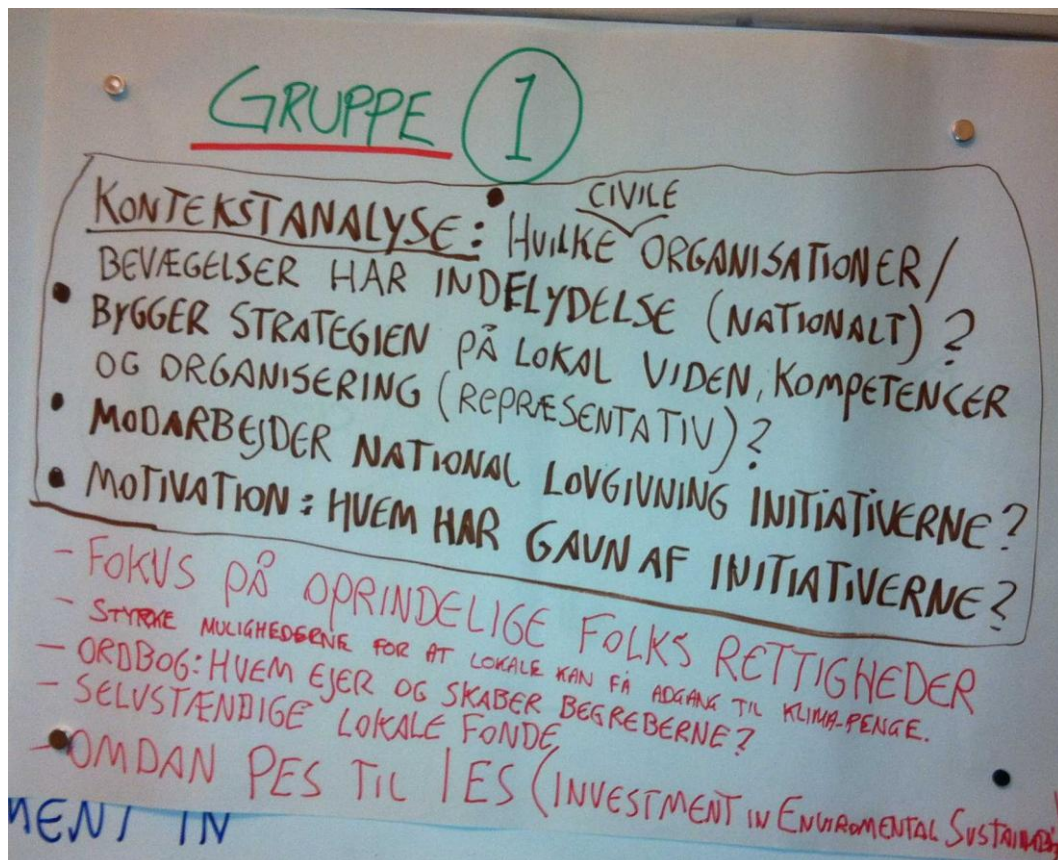 GRUPPE 1
CIVILE
KONTEKSTANALYSE: HVILKE ORGANISATIONER/
BEVÆGELSER HAR INDFLYDELSE (NATIONALT)?
• BYGGER STRATEGIEN PÅ LOKAL VIDEN, KOMPETENCER
OG ORGANISERING (REPRÆSENTATIV)?
• MODARBEJDER NATIONAL LOVGIVNING INITIATIVERNE?
• MOTIVATION: HVEM HAR GAVN AF INITIATIVERNE?
- FOKUS PÅ OPRINDELIGE FOLKS RETTIGHEDER
- STYRKE MULIGHEDERNE FOR AT LOKALE KAN FÅ ADGANG TIL KLIMA-PENGE.
- ORDBOG: HVEM EJER OG SKABER BEGREBERNE?
- SELVSTÆNDIGE LOKALE FONDE
- OMDAN PES TIL IES (INVESTMENT IN ENVIROMENTAL
MENT IN